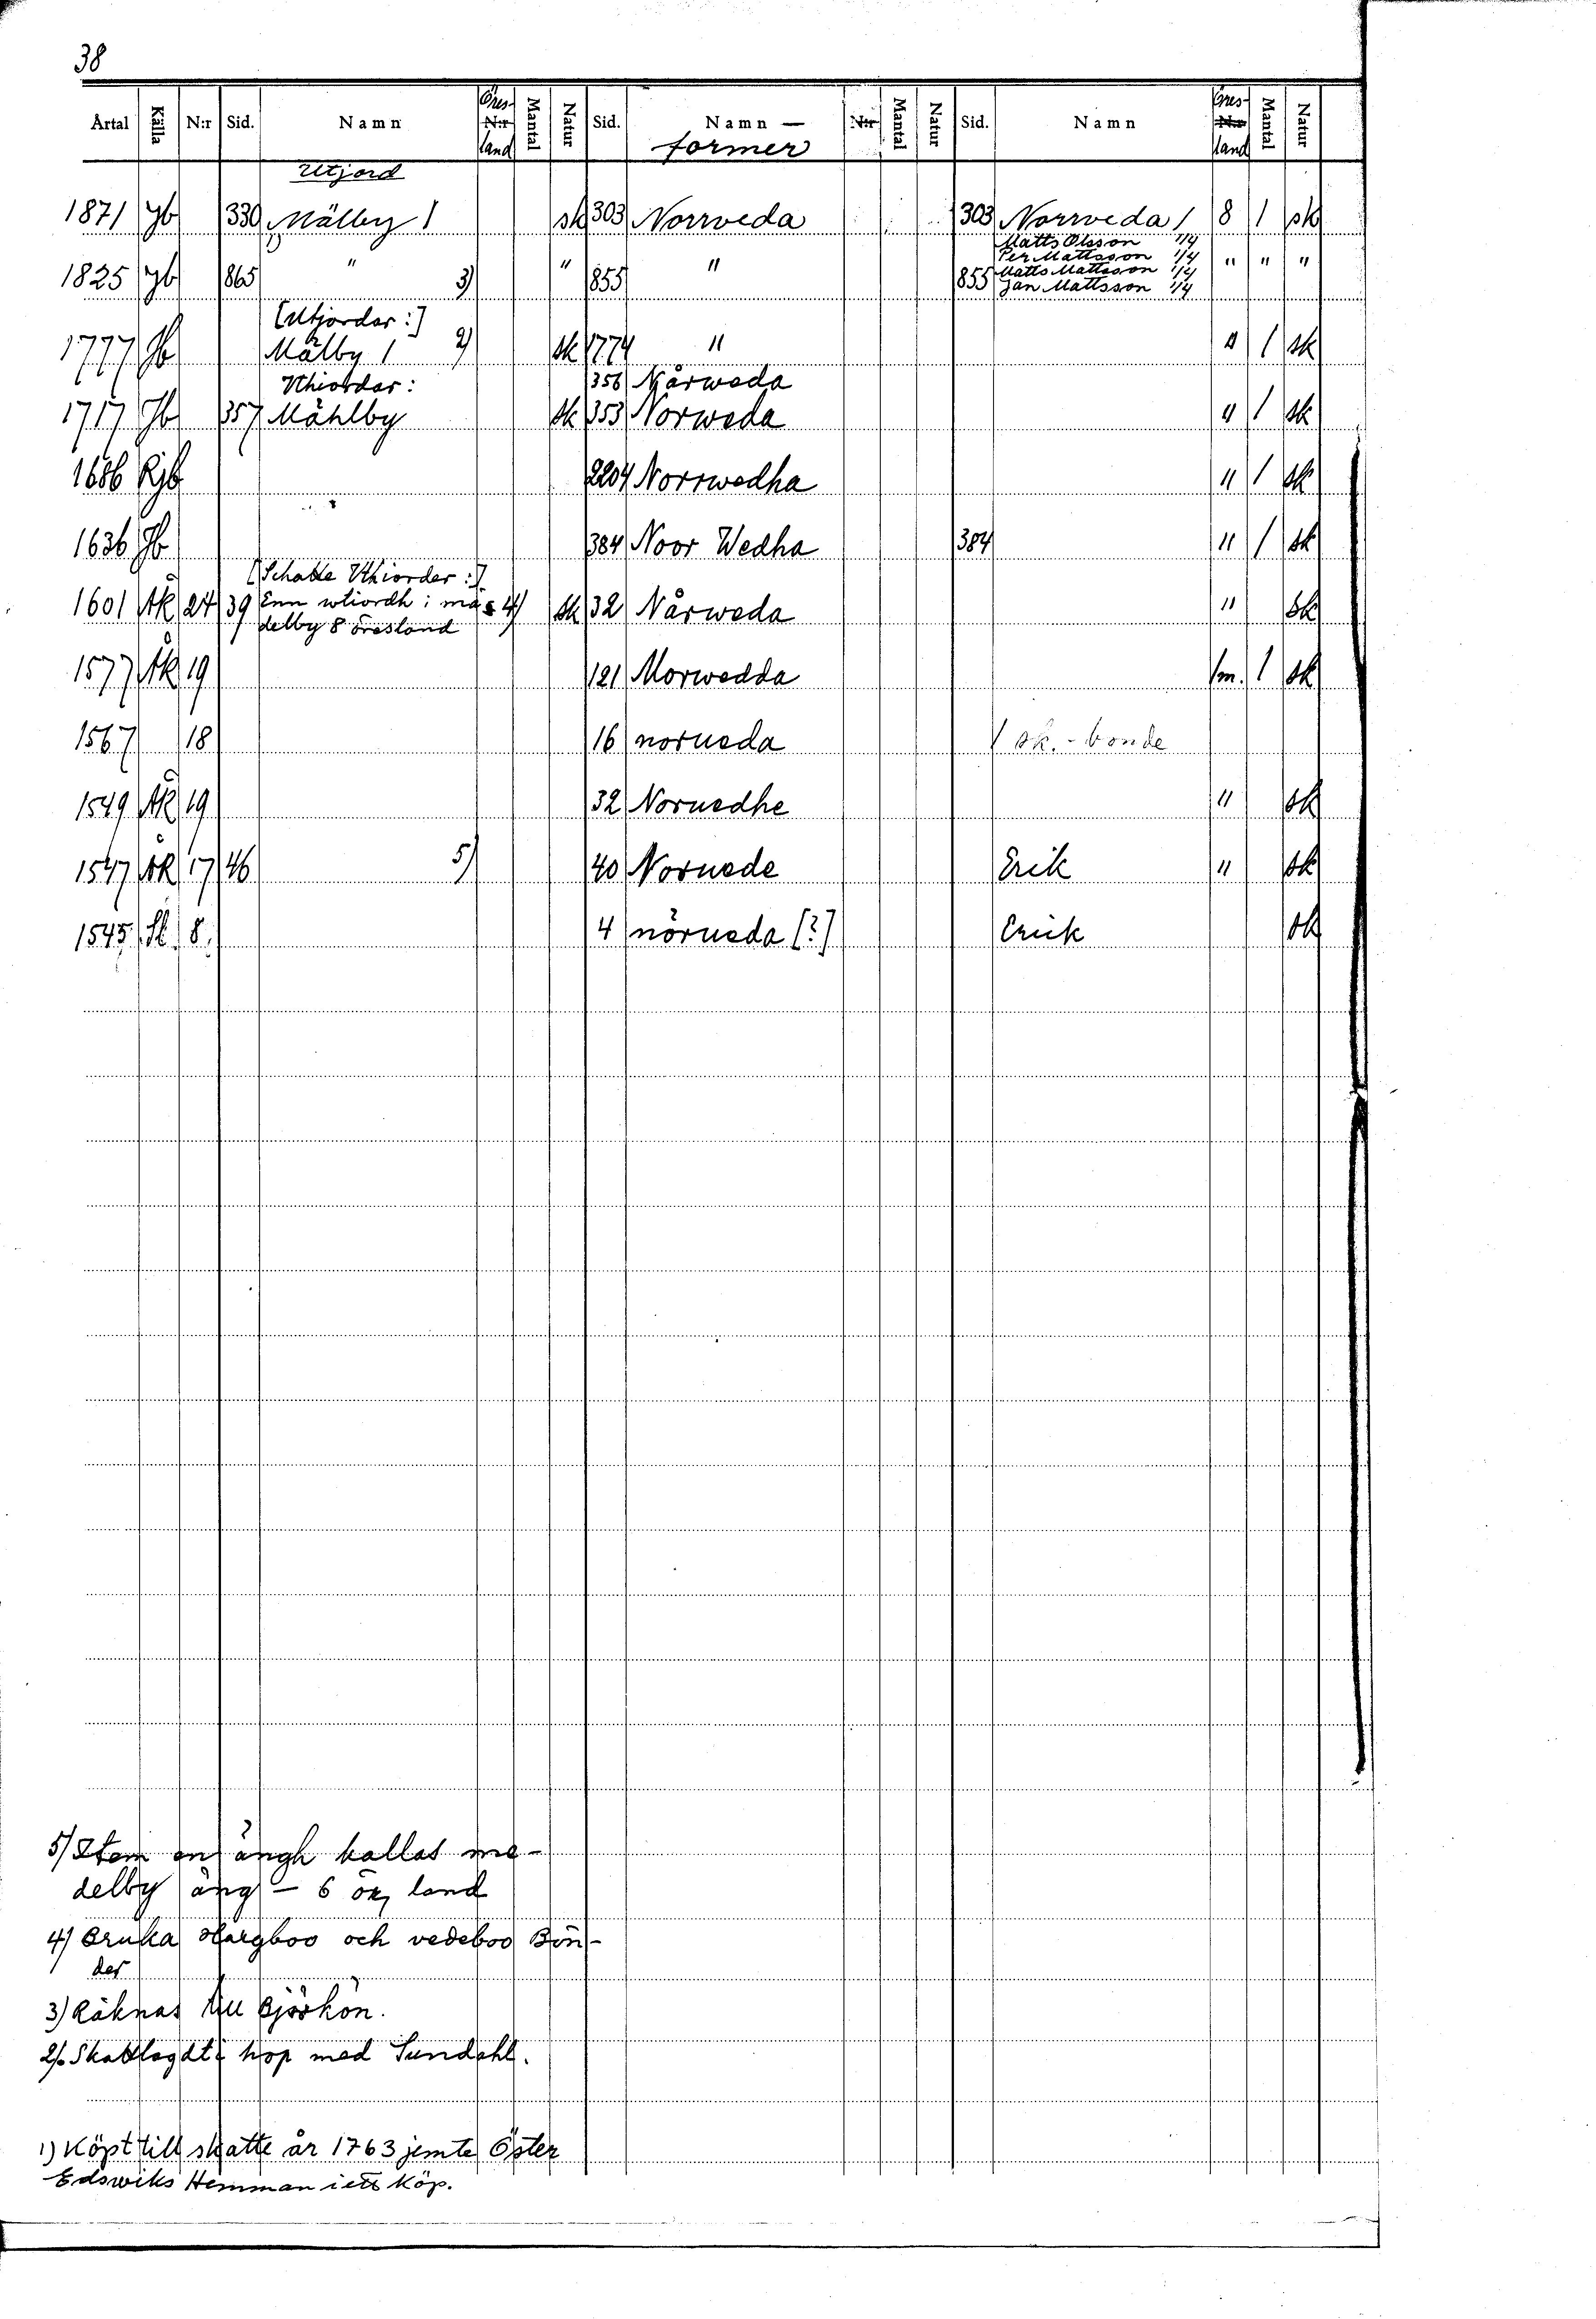 38
Årtal Källa N:r Sid. Namn Öres- N:r land Mantal Natur Sid. Namn — former N:r Mantal Natur Sid. Namn Öres- N:r land Mantal Natur
Utjord
1871 Jb 330 Mälby 1 sk 303 Norrveda 303 Norrveda 1 8 1 sk
1)
Matts Olsson 1/4
Per Mattsson 1/4
1825 Jb 865 " 3) " 855 " 855 Matts Mattsson 1/4 " " "
Jan Mattsson 1/4
[Utjordar:]
1777 Jb Mälby 1 2) sk 1774 " " 1 sk
Vthiordar: 356 Nårweda
1717 Jb 357 Mählby sk 353 Norweda " 1 sk
1686 Rjb 2204 Norrwedha " 1 sk
1636 Jb 384 Noor Wedha 384 " 1 sk
[Schatte Vthiorder:]
1601 Åk 24 39 Enn wtiordh i mä= 4) sk 32 Nårweda " sk
delby 8 öresland
1577 Åk 19 121 Morwedda 1m. 1 sk
1567 18 16 norueda 1 sk.-bonde
1549 Åk 19 32 Noruedhe " sk
1547 Åk 17 46 5) 40 Noruede Erik " sk
1545 Sl. 8. 4 nörueda [?] Erik sk
5) Item en ängh kallas me-
delby äng — 6 ör, land
4) Bruka Hargboo och vedeboo Bön-
der
3) Räknas till Björkön.
2) Skattlagdt i hop med Sundahl.
1) Köpt till skatte år 1763 jemte Öster
Edswiks Hemman i ett Köp.